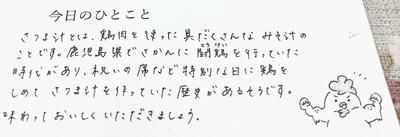 今日のひとこと
さつま汁とは、鶏肉を使った具だくさんな みそ汁の
ことです。鹿児島県でさかんに闘鶏(とうけい)を行っていた
時代があり、祝いの席など特別な日に鶏を
しめて さつま汁を作っていた歴史があるそうです。
味わっておいしくいただきましょう。